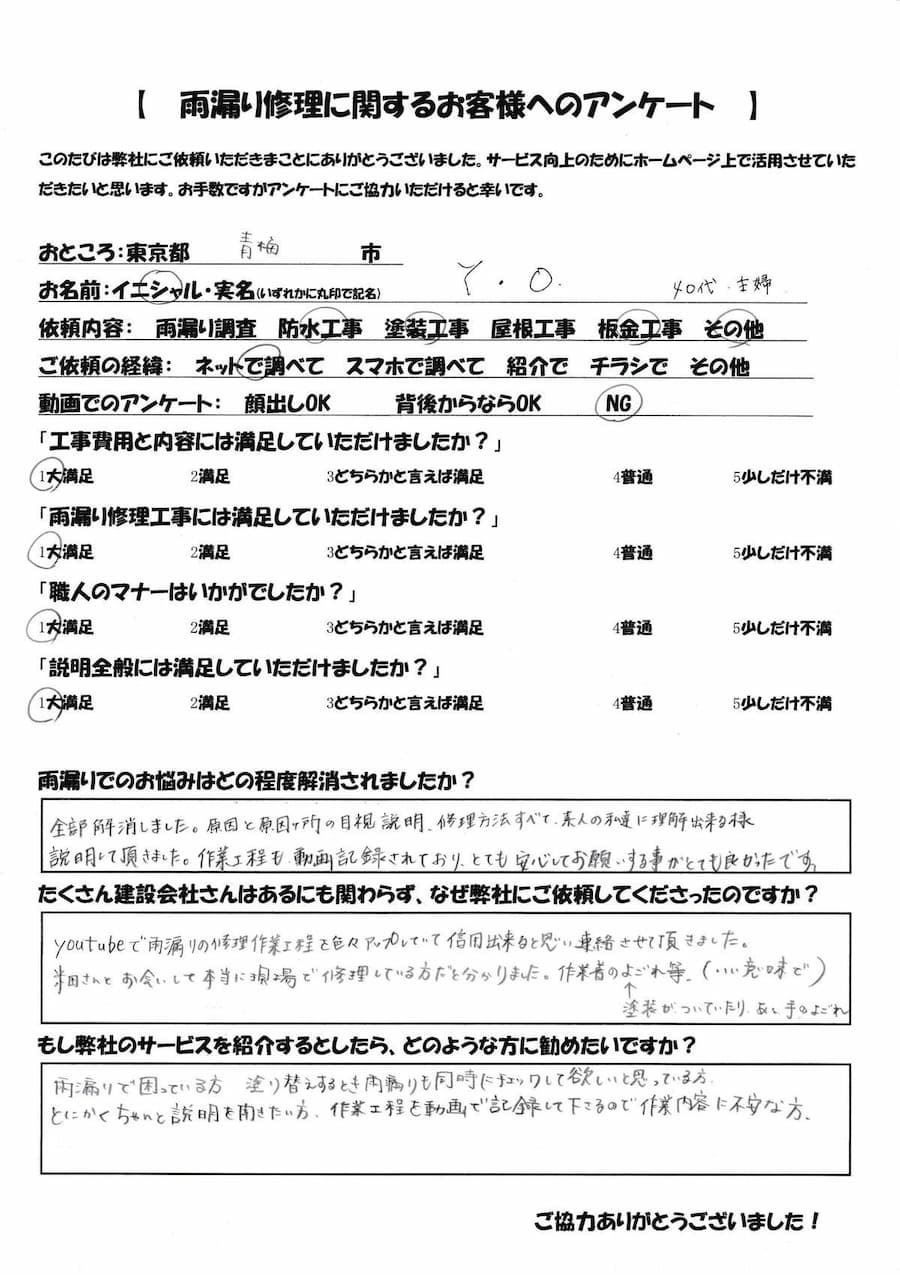 【 雨漏り修理に関するお客様へのアンケート 】
このたびは弊社にご依頼いただきまことにありがとうございました。サービス向上のためにホームページ上で活用させていた
だきたいと思います。お手数ですがアンケートにご協力いただけると幸いです。
おところ：東京都 青梅 市
お名前：イニシャル・実名(いずれかに丸印で記名) Y.O. 40代.主婦
依頼内容： 雨漏り調査 防水工事 塗装工事 屋根工事 板金工事 その他
ご依頼の経緯： ネットで調べて スマホで調べて 紹介で チラシで その他
動画でのアンケート： 顔出しOK 背後からならOK NG
「工事費用と内容には満足していただけましたか？」
1大満足 2満足 3どちらかと言えば満足 4普通 5少しだけ不満
「雨漏り修理工事には満足していただけましたか？」
1大満足 2満足 3どちらかと言えば満足 4普通 5少しだけ不満
「職人のマナーはいかがでしたか？」
1大満足 2満足 3どちらかと言えば満足 4普通 5少しだけ不満
「説明全般には満足していただけましたか？」
1大満足 2満足 3どちらかと言えば満足 4普通 5少しだけ不満
雨漏りでのお悩みはどの程度解消されましたか？
全部解消しました。原因と原因ヶ所の目視説明、修理方法すべて、素人の私達に理解出来る様
説明して頂きました。作業工程も、動画記録されており、とても安心してお願いする事がとても良かったです。
たくさん建設会社さんはあるにも関わらず、なぜ弊社にご依頼してくださったのですか？
youtubeで雨漏りの修理作業工程を色々アップしていて信用出来ると思い連絡させて頂きました。
米田さんとお会いして本当に現場で修理している方だと分かりました。作業者のよごれ等、(いい意味で)
↑
塗装がついていたり、あと手のよごれ
もし弊社のサービスを紹介するとしたら、どのような方に勧めたいですか？
雨漏りで困っている方 塗り替えするとき雨漏りも同時にチェックして欲しいと思っている方.
とにかくちゃんと説明を聞きたい方、作業工程を動画で記録して下さるので作業内容に不安な方、
ご協力ありがとうございました！